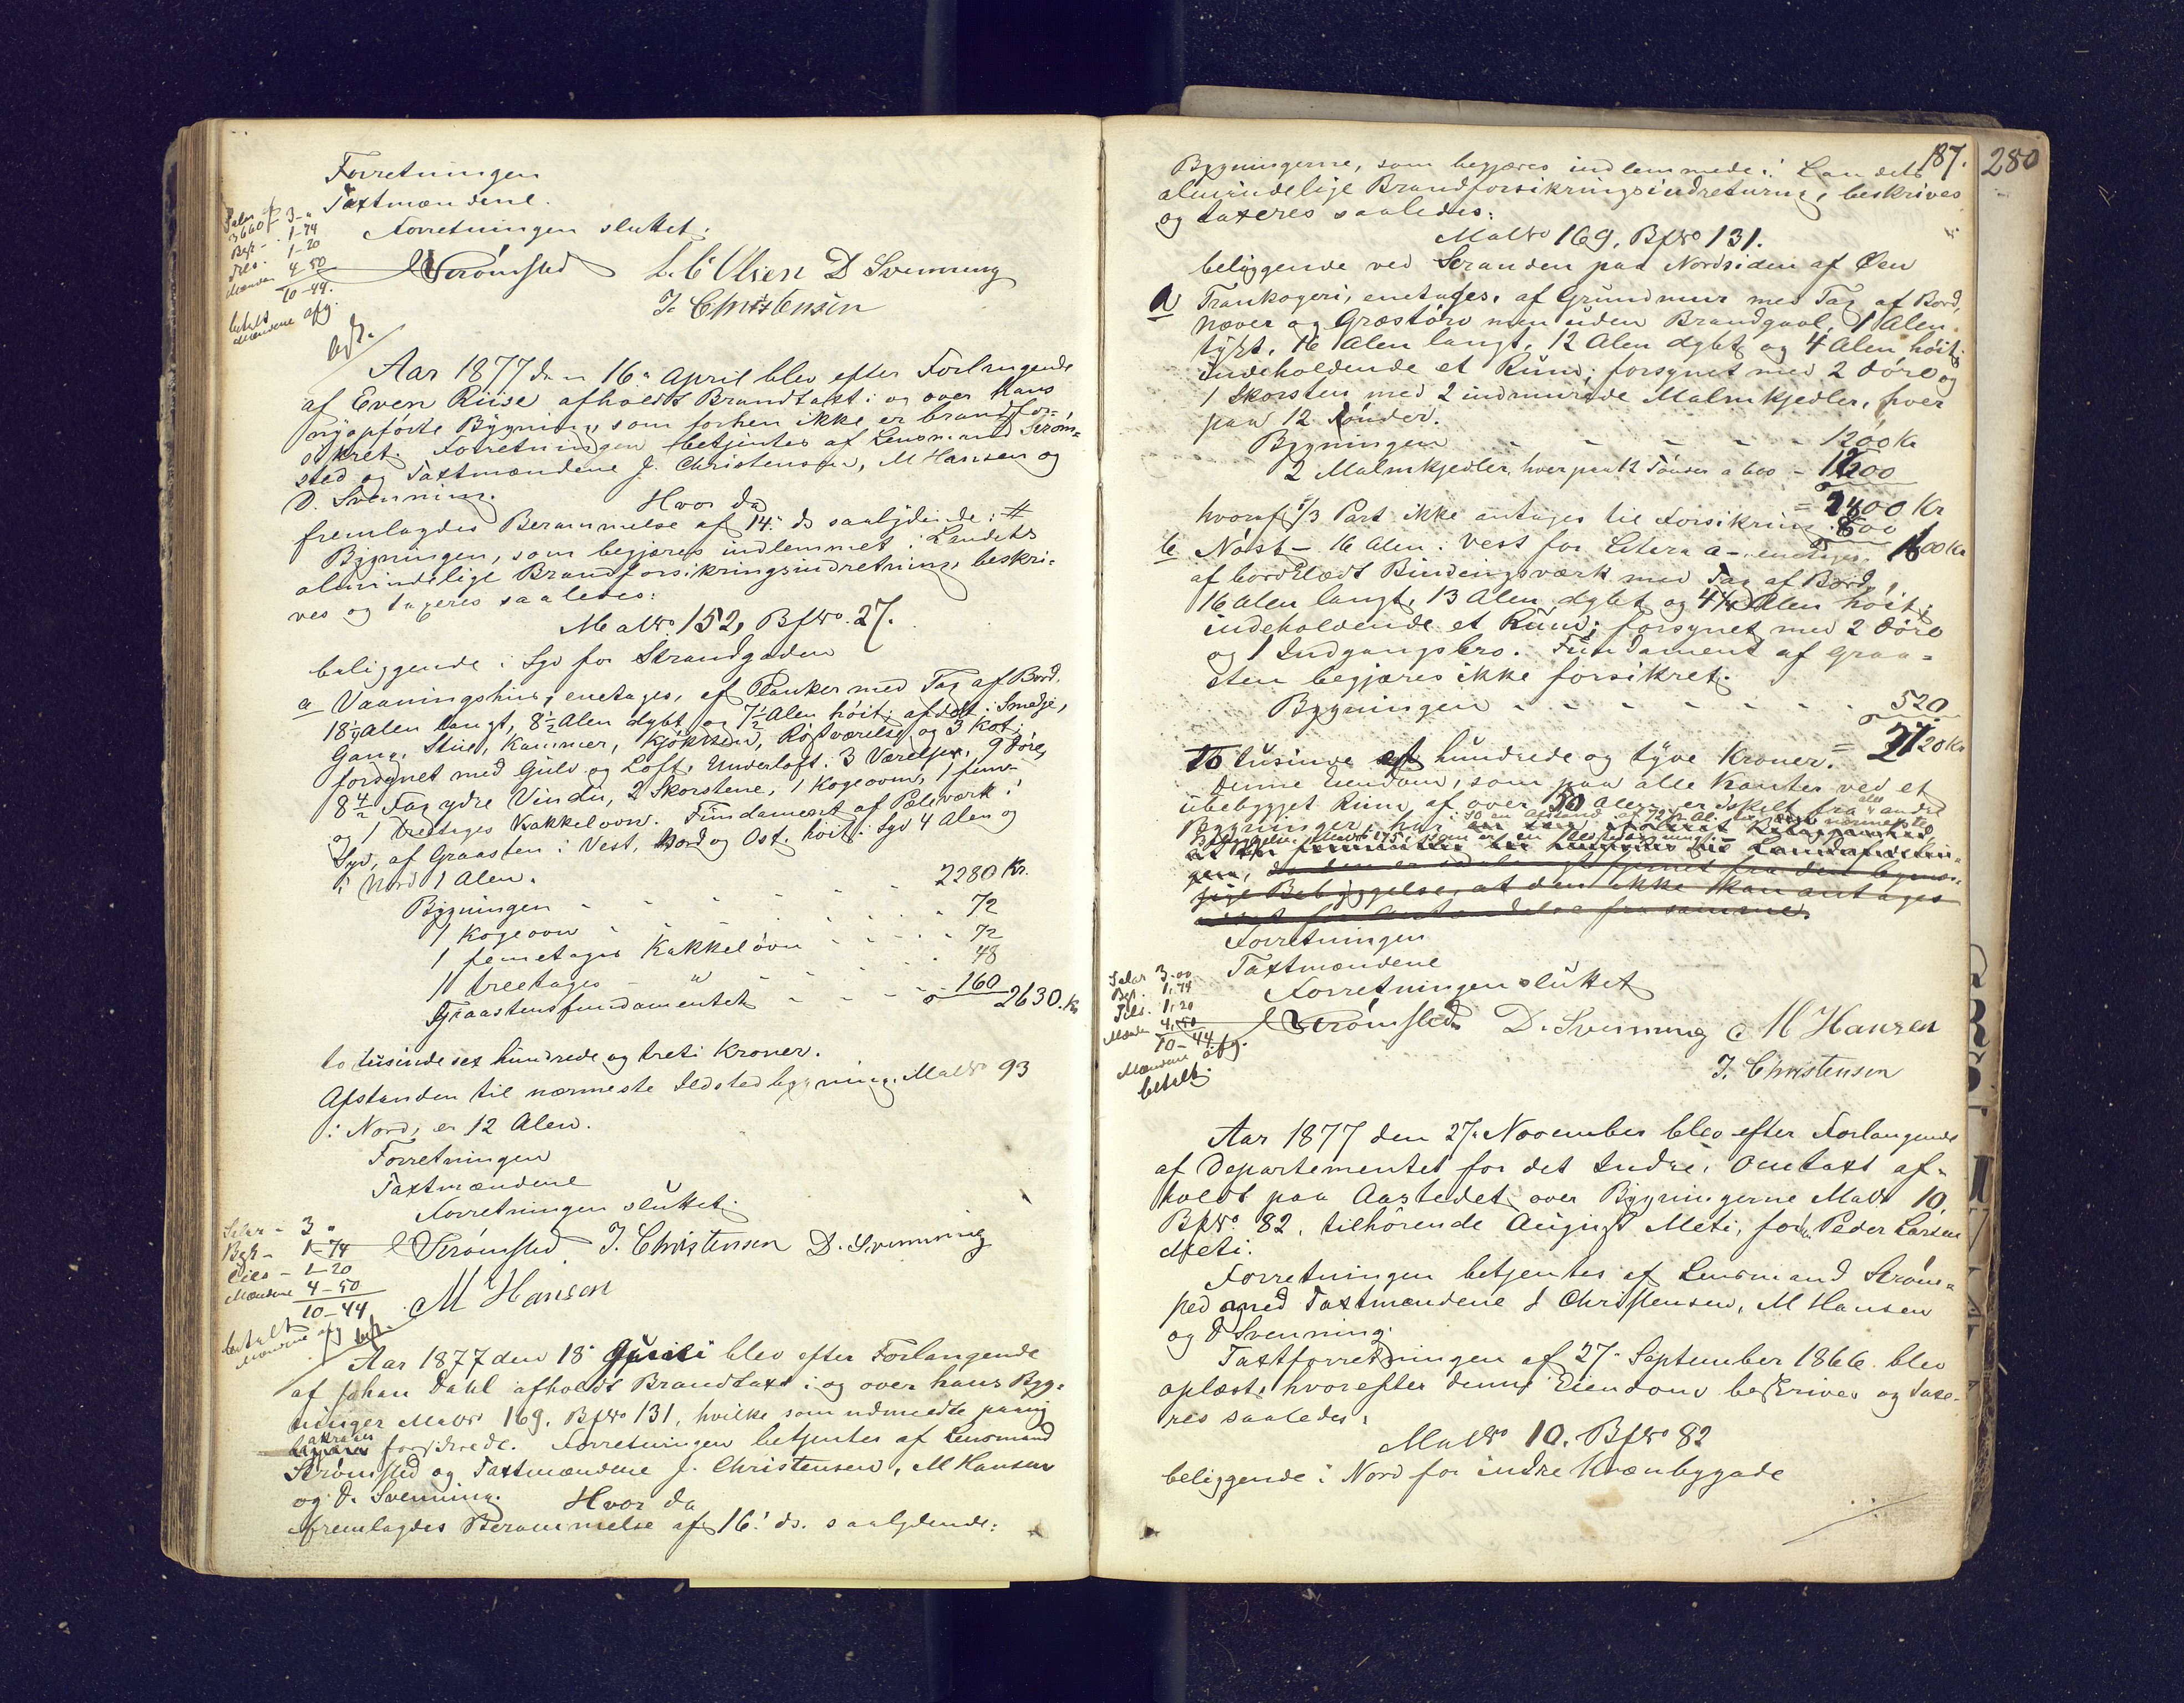 Forretningen
Taxtmændene.
Forretningen sluttet.
Salar af 3 - "
3660
Bef - . 1-74
Dils. 1-20
Mænden 4-50
10-44.
betalt
Mændene afg.
Strømsted L. C Olsen D Svenning
J. Christensen
Aar 1877 den 16' April blev efter Forlangende
af Even Riise afholdt Brandtaxt i og over hans
nyopførte Bygning, som forhen ikke er brandfor-
sikret. Forretningen betjentes af Lensmand Strøm-
sted og Taxtmændene J. Christensen, M Hansen og
D. Svenning.
Hvor da
fremlagdes Berammelse af 14' ds saalydende: #
Bygningen, som begjæres indlemmet i Landets
almindelige Brandforsikringsindretning, beskri-
ves og taxeres saaledes:
Mat No 152, Bf No. 27.
beliggende i Syd for Strandgaden
a Vaaningshus, enetages, af Planker med Tag af Bord.
18 1/4 Alen langt, 8 1/2 Alen dybt og 7 1/2 Alen høit; afdelt i Smedje,
Gang, Stue, Kammer, Kjøkken, Røstværelse og 3 Kot;
forsynet med Gulv og Loft, Underloft. 3 Værelser, 9 Døre,
8 4/2 Fag ydre Vindu, 2 Skorstene, 1 Kogeovn, 1 fem-
og 1 treetages Kakkelovn. Fundament af Pæleværk i
Syd, af Graasten i Vest, Nord og Ost. høit i Syd 4 Alen og
i Nord 1 Alen.
Bygningen - - - - 2280 Kr.
1 Kogeovn - - - - 72
1 femetages Kakkelovn - - - - 72
1 treetages - " - - - - 48
Graastensfundamentet - - - - 160
2630. Kr
to tusinde sex hundrede og treti Kroner.
Afstanden til nærmeste Ildstedbygning. Mat No 93
i Nord, er 12 Alen.
Forretningen
Taxtmændene
Forretningen sluttet
Salar - 3 "
Bef - 1-74
Dils - 1-20
Mændene 4-50
10-44
betalt
Mændene afg
Strømsted J. Christensen D. Svenning
M Hansen
Aar 1877 den 18' Juni blev efter Forlangende
af Johan Dahl afholdt Brandtaxt i og over hans Byg-
ninger Mat No 169. Bf No 131, hvilke som udmeldte paany
forsikrede. Forretningen betjentes af Lensmand
Strømsted og Taxtmændene J. Christensen, M Hansen
og D. Svenning.
Hvor da
fremlagdes Berammelse af 16' ds. saalydende:
187.
280
Bygningerne, som begjæres indlemmede i Landets
almindelige Brandforsikringsindretning, beskrives
og taxeres saaledes:
Mat No 169. Bf No 131.
beliggende ved Stranden paa Nordsiden af Øen
a Trankogeri, enetages, af Grundmur med Tag af Bord,
Næver og Græstørv men uden Brandgavl, 1 Alen
tykt, 16 Alen langt, 12 Alen dybt og 4 Alen høit;
indeholdende et Rum; forsynet med 2 Døre og
1 Skorsten med 2 indmurede Malmkjedler, hver
paa 12 Tønder.
Bygningen - - - - 1200 Kr
2 Malmkjedler, hver paa 12 Tønder a 600 - 1200
= 2400 Kr
hvoraf 1/3 Part ikke antages til Forsikring 800
1600 Kr
b Nøst - 16 Alen i Vest for Litera a - enetages
af bordklædt Bindingsværk med Tag af Bord,
16 Alen langt, 13 Alen dybt og 4 1/4 Alen høit;
indeholdende et Rum; forsynet med 2 Døre
og 1 Indgangsbro. Fundament af Graa-
sten begjæres ikke forsikret.
Bygningen - - - - 520
= 2120 Kr
To tusinde et hundrede og tyve Kroner.
Denne Eiendom, som paa alle Kanter ved et
ubebygget Rum af over 50 Alen er adskilt fra alle andre
Bygninger, har
da den er saalangt fjernet fra den bymæs-
sige Bebyggelse, at den ikke kan antages
Forretningen
Taxtmændene
Forretningen sluttet
Salar 3-00
Bef. 1,74
Dils. 1,20
Mænden 4,50
10-44.
Mændene afg.
betalt.
Strømsted D. Svenning M Hansen
J. Christensen
Aar 1877 den 27' November blev efter Forlangende
af Departementet for det Indre, Omtaxt af-
holdt paa Aastedet over Bygningerne Mat No 10,
Bf No 82, tilhørende August Meti, forh. Peder Larsen
Meti.
Forretningen betjentes af Lensmand Strøm-
sted med Taxtmændene J Christensen, M Hansen
og D Svenning.
Taxtforretningen af 27' September 1866 blev
oplæst, hvorefter denne Eiendom beskrives og taxe-
res saaledes:
Mat No 10. Bf No 82
beliggende i Nord for indre Kvænbygade